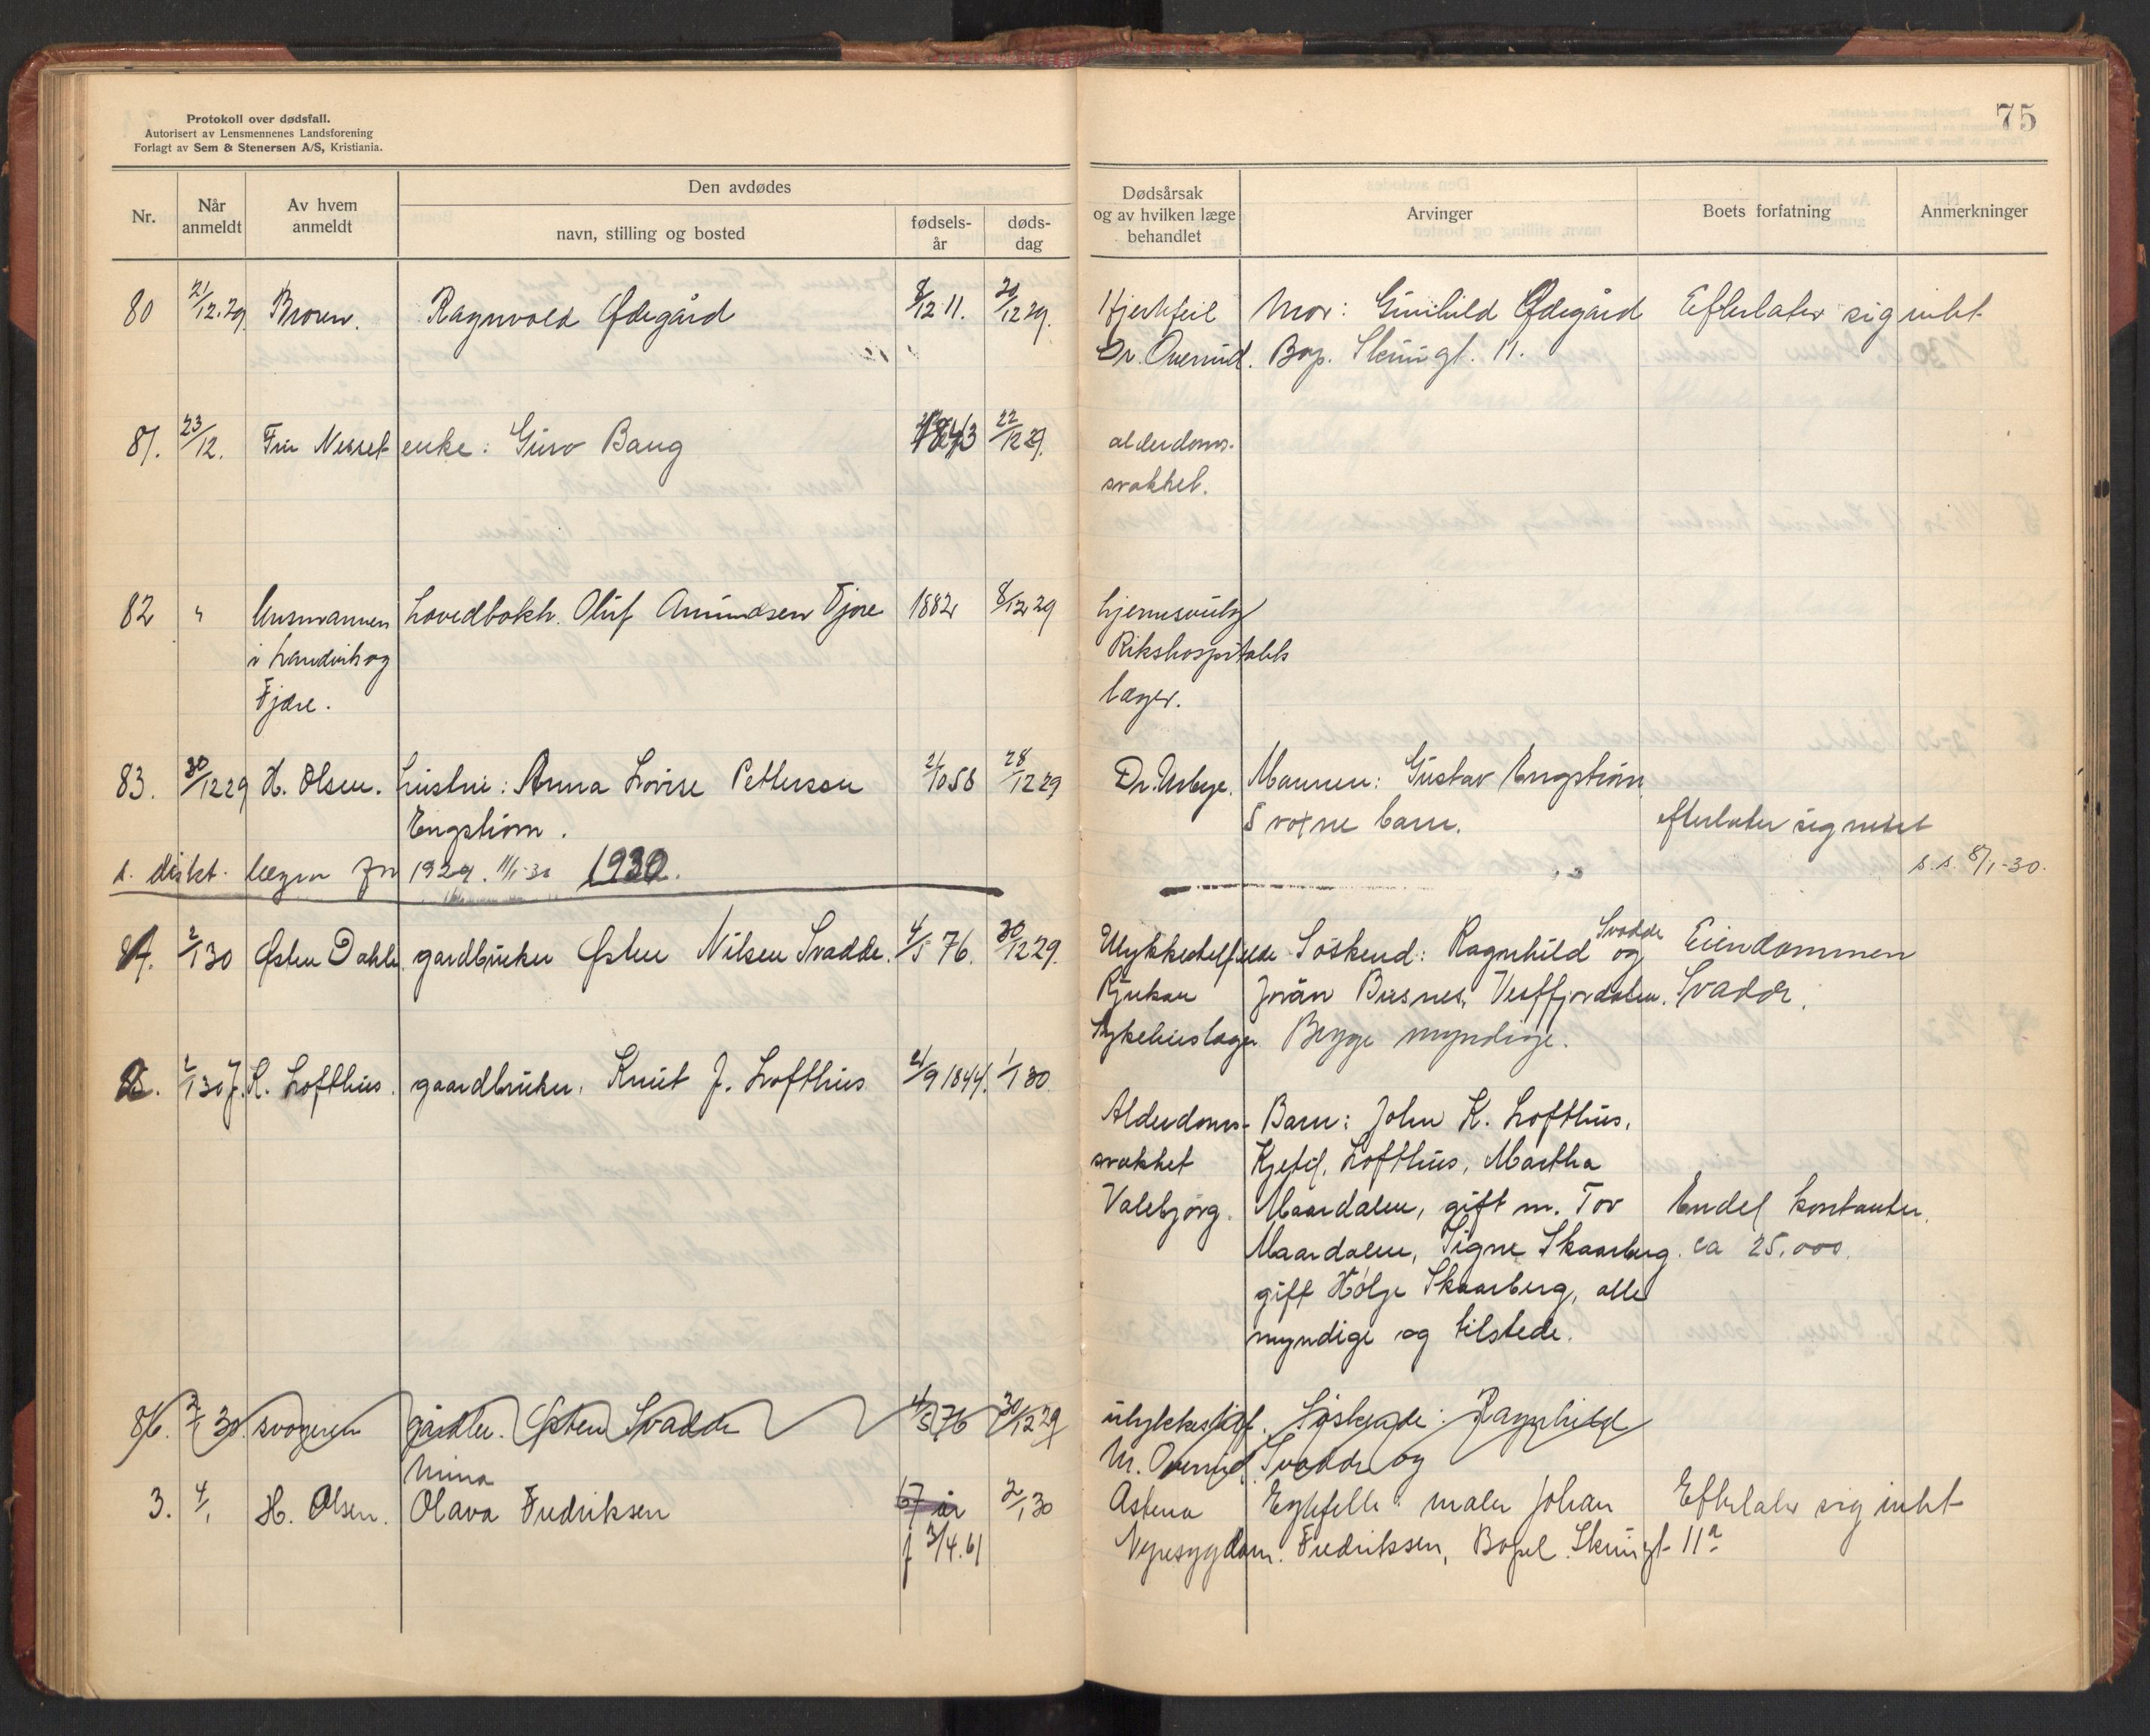 Protokoll over dødsfall.
Autorisert av Lensmennenes Landsforening
Forlagt av Sem & Stenersen A/S, Kristiania.
75
Nr.
Når anmeldt
Av hvem anmeldt
Den avdødes
navn, stilling og bosted
fødsels-år
døds-dag
Dødsårsak og av hvilken læge behandlet
Arvinger
Boets forfatning
Anmerkninger
80 21/12.29 Broren. Ragnvald Ødegård 8/12 11. 20/12 29. Hjertefeil Mor: Gunhild Ødegård Efterlater sig intet
Dr. Overrud. Bop. Skriugt. 11.
81. 23/12. Fru Nesset enke: Guro Baug 1843 22/12 29. alderdoms-
svakhet.
82 " Lensmannen hovedbokh. Oluf Amundsen Fjære 1882 8/12 29 hjernesvulst
i Landvik og Rikshospitalets
Fjære. læger.
83. 30/12 29 H. Olsen. hustru: Anna Lovise Petterson 2/10 58 28/12 29 Dr. Utbye. Mannen: Gustav Engström
Engström. 5 voxne barn. efterlater sig intet
s. distr. lægen for 1929. 11/1-30 1930. s.s. 8/1-30.
84. 2/1 30 Østen Dahle gardbruker Østen Nilsen Svadde. 4/5 76. 30/12 29. Ulykkestilfelde Söskend: Ragnhild Svadde og Eiendommen
Rjukan Jorån Busnes, Vestfjordalen. Svadde.
Sykehuslæger Begge myndige.
85. 2/1 30 J. K. Lofthus. gaardbruker, Knut J. Lofthus 21/9 1844. 1/1 30.
Alderdoms- Barn: John K. Lofthus,
svakhet Kjetil Lofthus, Martha
Valebjörg. Maardalen, gift m. Tov Endel kontanter.
Maardalen, Signe Skaarberg. ca 25.000.
gift Hölje Skaarberg, alle
myndige og tilstede.
86. 2/1 30 svogeren gårdbr. Østen Svadde 4/5 76 30/12 29 ulykkestilf. Söskende: Ragnhild
Dr. Overrud Svadde og
Mina
3. 4/1 H. Olsen. Olava Fredriksen 67 år 2/1 30 Astma Ektefelle: maler Johan Efterlater sig intet
f 3/4.61 Nyresygdom. Fredriksen, Bopel Skriugt 11a